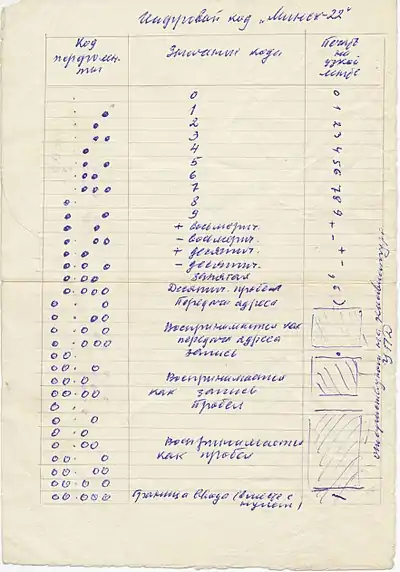 Цифровой код „Минск-22"
Код перфолен-
ты
Значение кода
Печать
на
узкой
ленте
0
1 1
2 2
3 3
4 4
5 5
6 6
7 7
8 8
9 9
+ восьмерич. +
- восьмерич. -
+ десятич. +
- десятич. -
запятая
Десятич. пробел
Передача адреса
Воспринимается как
передача адреса
запись
Воспринимается
как запись
Пробел
Воспринимается
как пробел
Граница Ввода (вместе с
нулем)
УПД